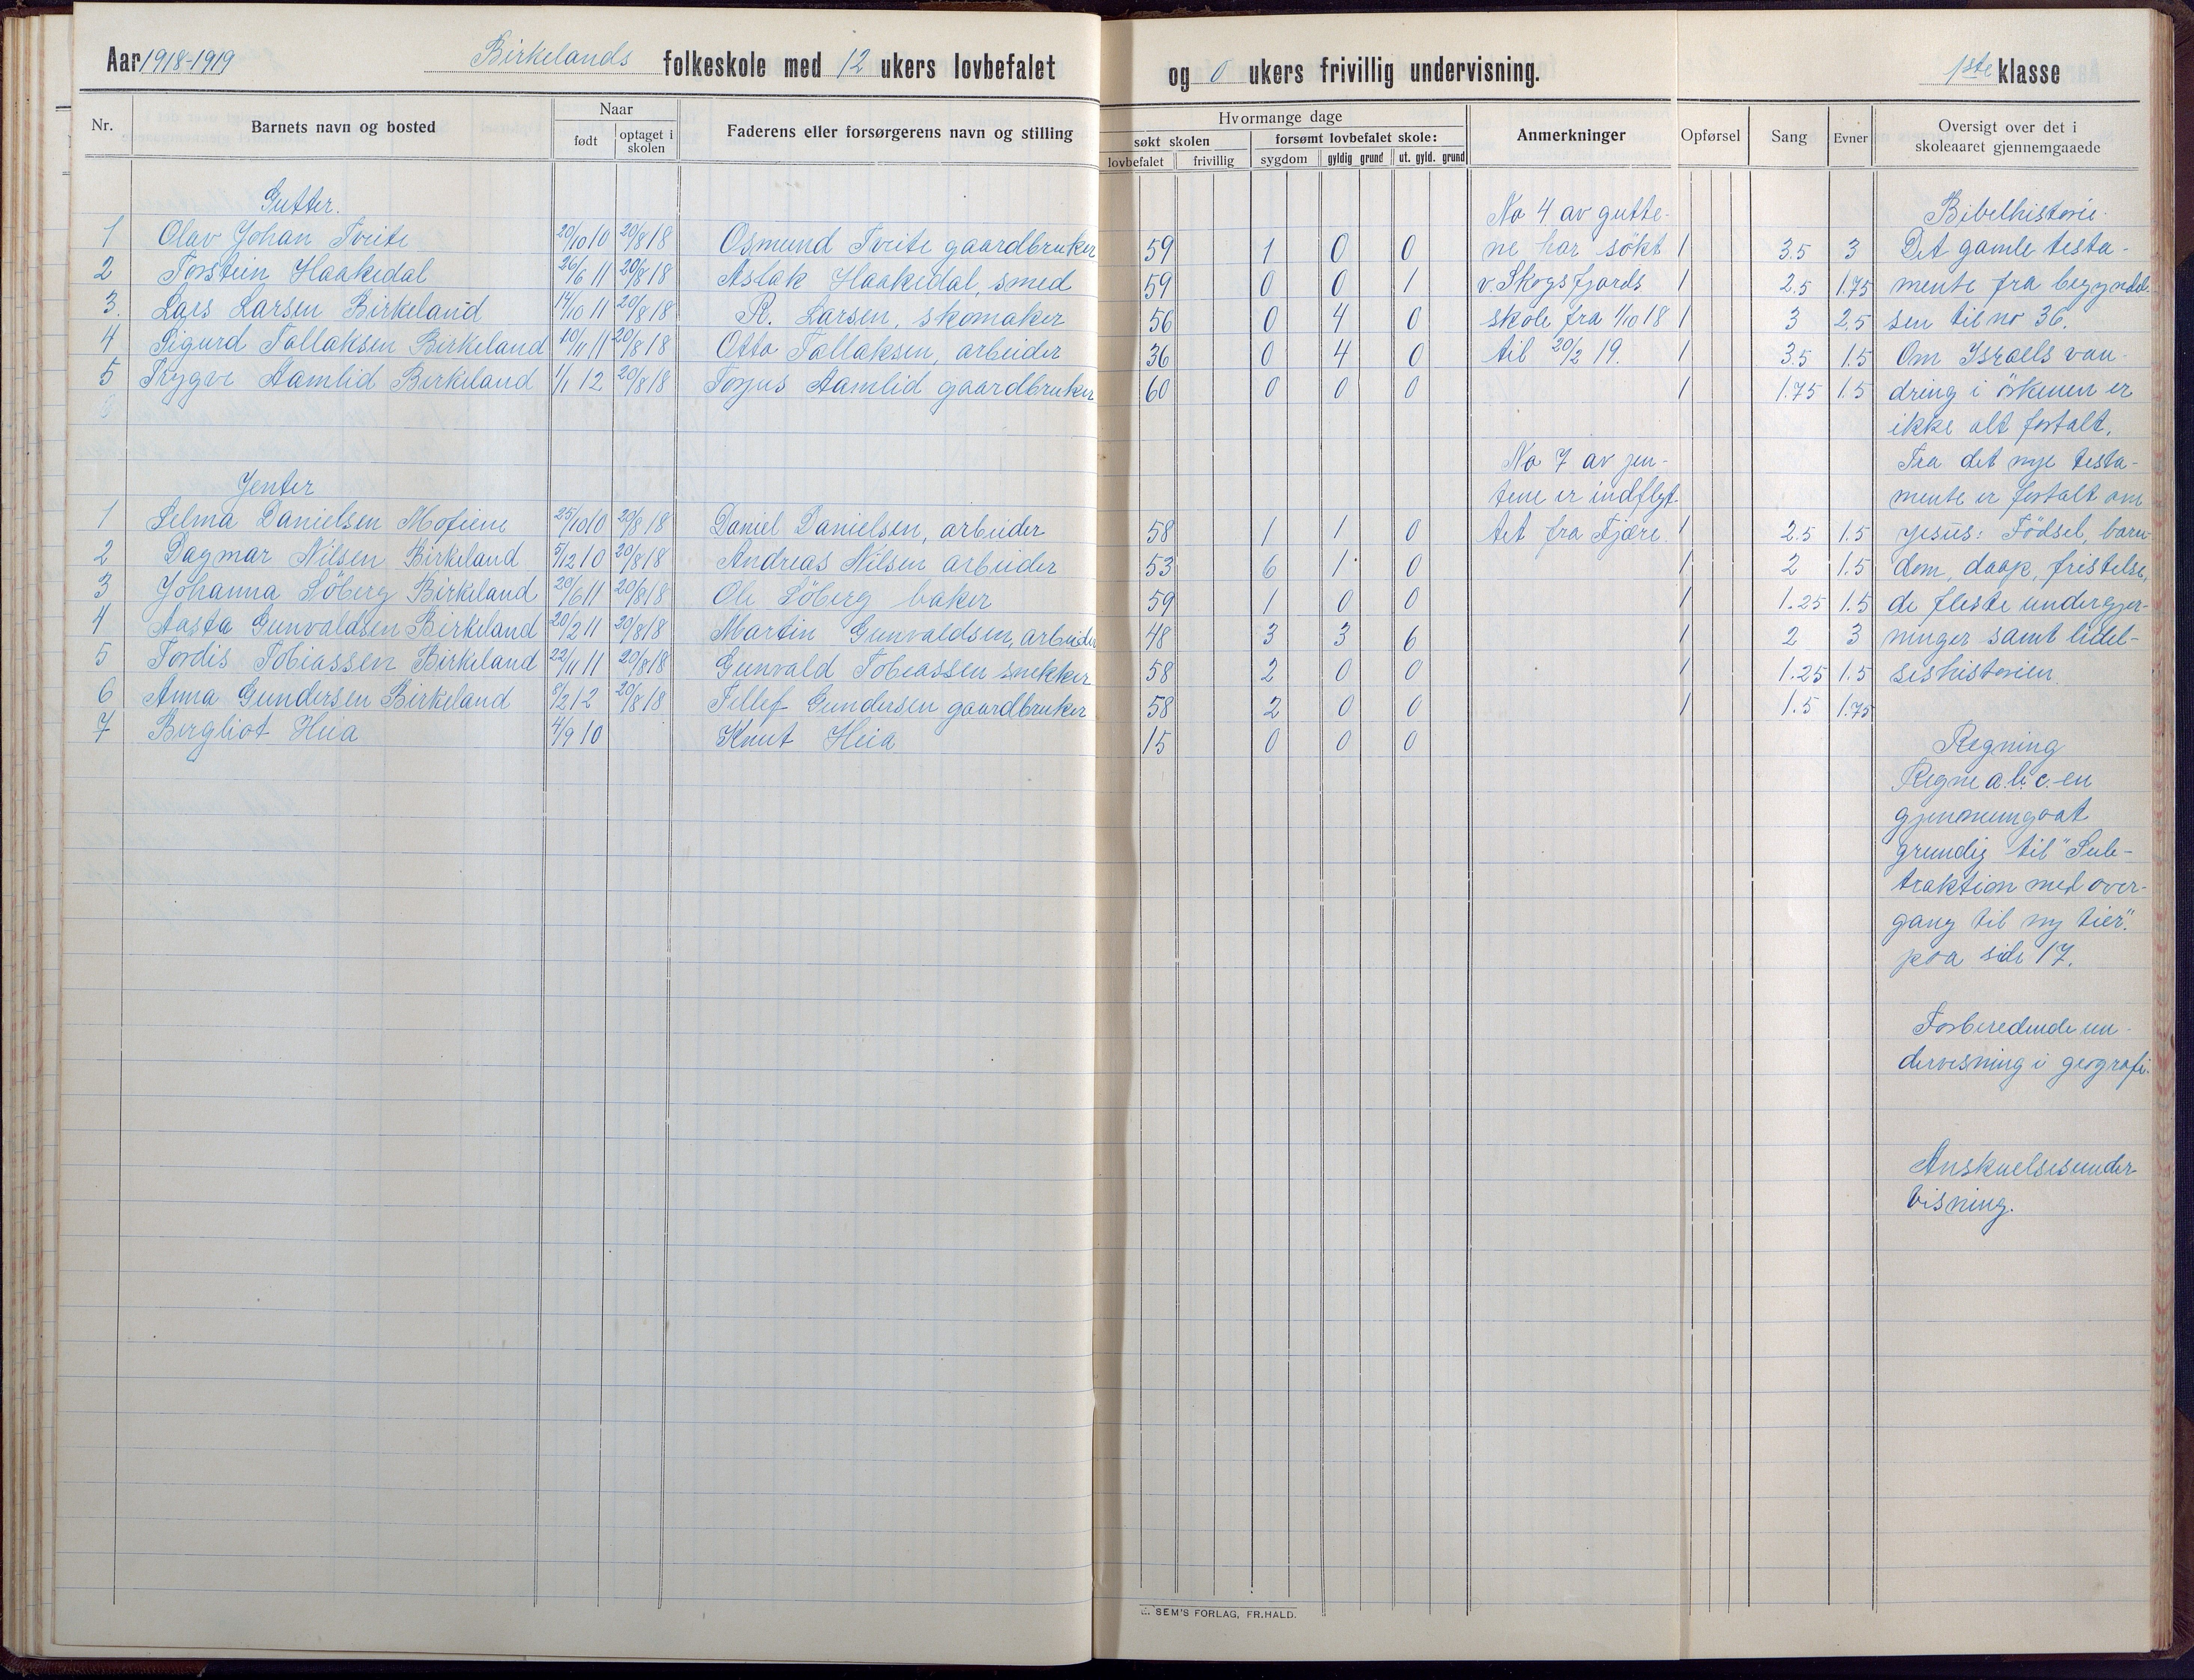 Aar 1918-1919 Birkelands folkeskole med 12 ukers lovbefalet og 0 ukers frivillig undervisning. 1ste klasse
Nr. Barnets navn og bosted Naar født optaget i skolen Faderens eller forsørgerens navn og stilling
Hvormange dage søkt skolen lovbefalet frivillig forsømt lovbefalet skole: sygdom gyldig grund ut. gyld. grund Anmerkninger Opførsel Sang Evner Oversigt over det i skoleaaret gjennemgaaede
Gutter.
1 Olav Johan Tveite 20/10 10 20/8 18 Osmund Tveite gaardbruker 59 1 0 0 1 3.5 3
2 Torstein Haakedal 26/6 11 20/8 18 Aslak Haakedal, smed 59 0 0 1 1 2.5 1.75
3. Lars Larsen Birkeland 14/10 11 20/8 18 R. Larsen, skomaker 56 0 4 0 1 3 2.5
4 Sigurd Tallaksen Birkeland 10/11 11 20/8 18 Otto Tallaksen, arbeider 36 0 4 0 1 3.5 1.5
5 Trygve Aamlid Birkeland 1/1 12 20/8 18 Torjus Aamlid gaardbruker 60 0 0 0 1 1.75 1.5
Jenter
1 Selma Danielsen Mofiene 25/10 10 20/8 18 Daniel Danielsen, arbeider 58 1 1 0 1 2.5 1.5
2 Dagmar Nilsen Birkeland 5/12 10 20/8 18 Andreas Nilsen arbeider 53 6 1 0 1 2 1.5
3 Johanna Söberg Birkeland 20/6 11 20/8 18 Ole Söberg baker 59 1 0 0 1 1.25 1.5
4 Aasta Gunvaldsen Birkeland 20/2 11 20/8 18 Martin Gunvaldsen, arbeider 48 3 3 6 1 2 3
5 Tordis Tobiassen Birkeland 22/11 11 20/8 18 Gunvald Tobiassen snekker 58 2 0 0 1 1.25 1.5
6 Anna Gundersen Birkeland 8/2 12 20/8 18 Tellef Gundersen gaardbruker 58 2 0 0 1 1.5 1.75
7 Bergliot Heia 4/9 10 Knut Heia 15 0 0 0
No 4 av gutte-
ne har søkt
v. Skogsfjords
skole fra 1/10 18
til 20/2 19.
No 7 av jen-
tene er indflyt-
tet fra Fjære.
Bibelhistorie.
Det gamle testa-
mente fra begyndel-
sen til no 36.
Om Israels van-
dring i örkenen er
ikke alt fortalt.
Fra det nye testa-
mente er fortalt om
Jesus: Födsel, barn-
dom, daap, fristelse,
de fleste undergjer-
ninger samt lidel-
seshistorien.
Regning
Regne a.b.c-en
gjennemgaat
grundig til "Sub-
traktion med over-
gang til ny tier".
paa side 17.
Forberedende un-
dervisning i geografi.
Anskuelsesunder-
visning.
SEM'S FORLAG, FR.HALD.